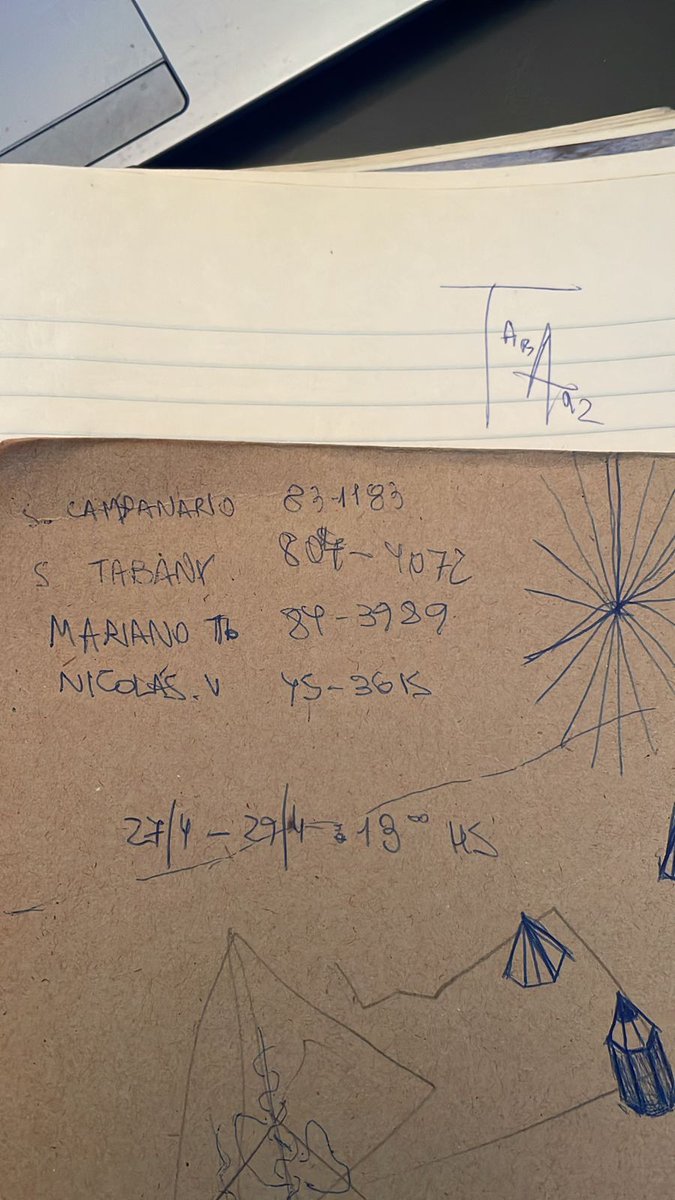 S. CAMPANARIO 83-1183
S TABANY. 807-4072
MARIANO Tb 84-3989
NICOLÁS.V 45-3615
27/4 - 29/4 13⁰⁰ HS